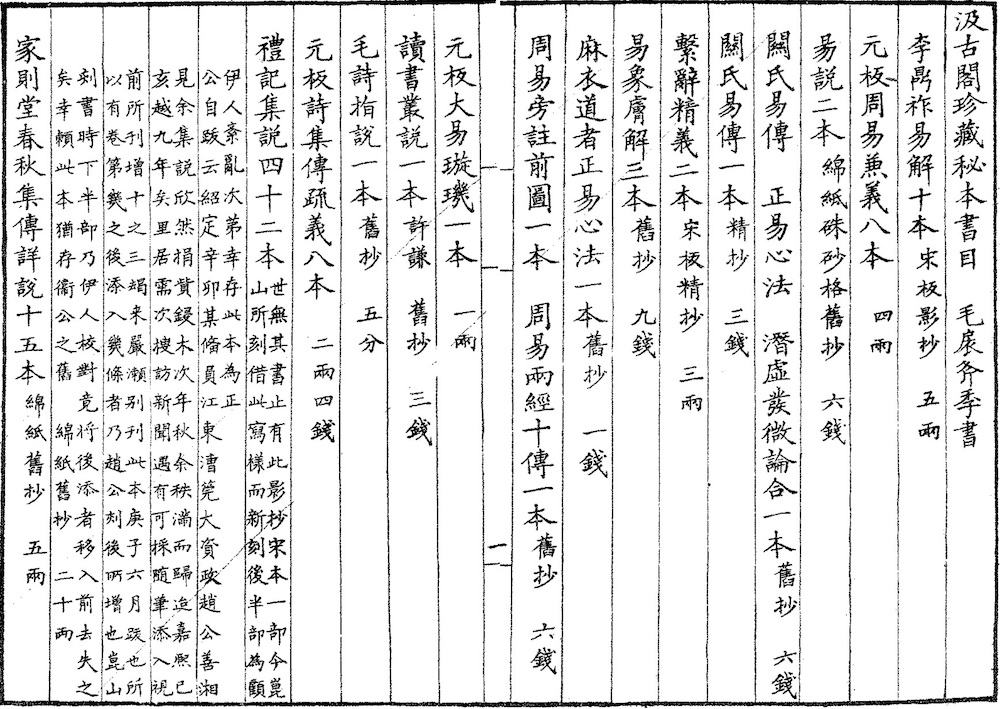 汲古閣珍藏秘本書目　毛扆斧季書
李鼎祚易解十本 宋板影抄　五兩
元板周易兼義八本　四兩
易説二本 綿紙硃砂格舊抄　六錢
關氏易傳　正易心法　潛虛發微論合一本 舊抄　六錢
關氏易傳一本 精抄　三錢
繫辭精義二本 宋板精抄　三兩
易象膚解三本 舊抄　九錢
麻衣道者正易心法一本 舊抄　一錢
周易旁註前圖一本　周易兩經十傳一本 舊抄　六錢
一
元板大易璇璣一本　一兩
讀書叢説一本 許謙　舊抄　三錢
毛詩指説一本 舊抄　五分
元板詩集傳疏義八本　二兩四錢
禮記集説四十二本 世無其書止有此影抄宋本一部今崑
山所刻借此寫樣而新刻後半部為顧
伊人紊亂次第幸存此本為正
公自跋云紹定辛卯某備員江東漕筦大資政趙公善湘
見余集説欣然捐貲鋟木次年秋余秩滿而歸迨嘉熙已
亥越九年矣里居需次搜訪新聞遇有可採隨筆添入視
前所刊增十之三朅来嚴瀬别刊此本庚子六月跋也所
以有卷第幾之後添入幾條者乃趙公刻後所增也崑山
刻書時下半部乃伊人校對竟将後添者移入前去失之
矣幸賴此本猶存衞公之舊　綿紙舊抄　二十兩
家則堂春秋集傳詳説十五本 綿紙舊抄　五兩